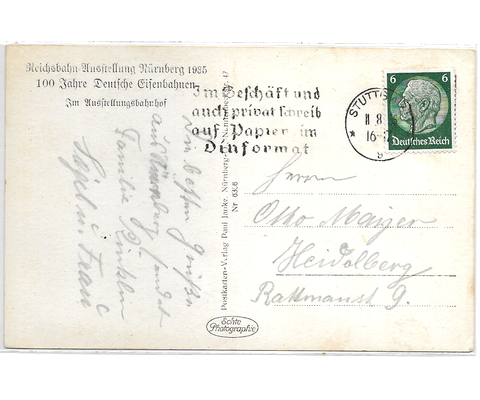 Reichsbahn-Ausstellung Nürnberg 1935
100 Jahre Deutsche Eisenbahnen
Im Ausstellungsbahnhof
Im Geschäft und
auch privat schreib
auf Papier im
Dinformat
STUTTG
11.8
16-
6 6
Deutsches Reich
Die besten Grüße
aus Nürnberg sendet
Familie
Frau
Postkarten-Verlag Paul Janke, Nürnberg-
Nr 63.6
Herrn
Otto Mayer
Heidelberg
9.
Echte
Photographie